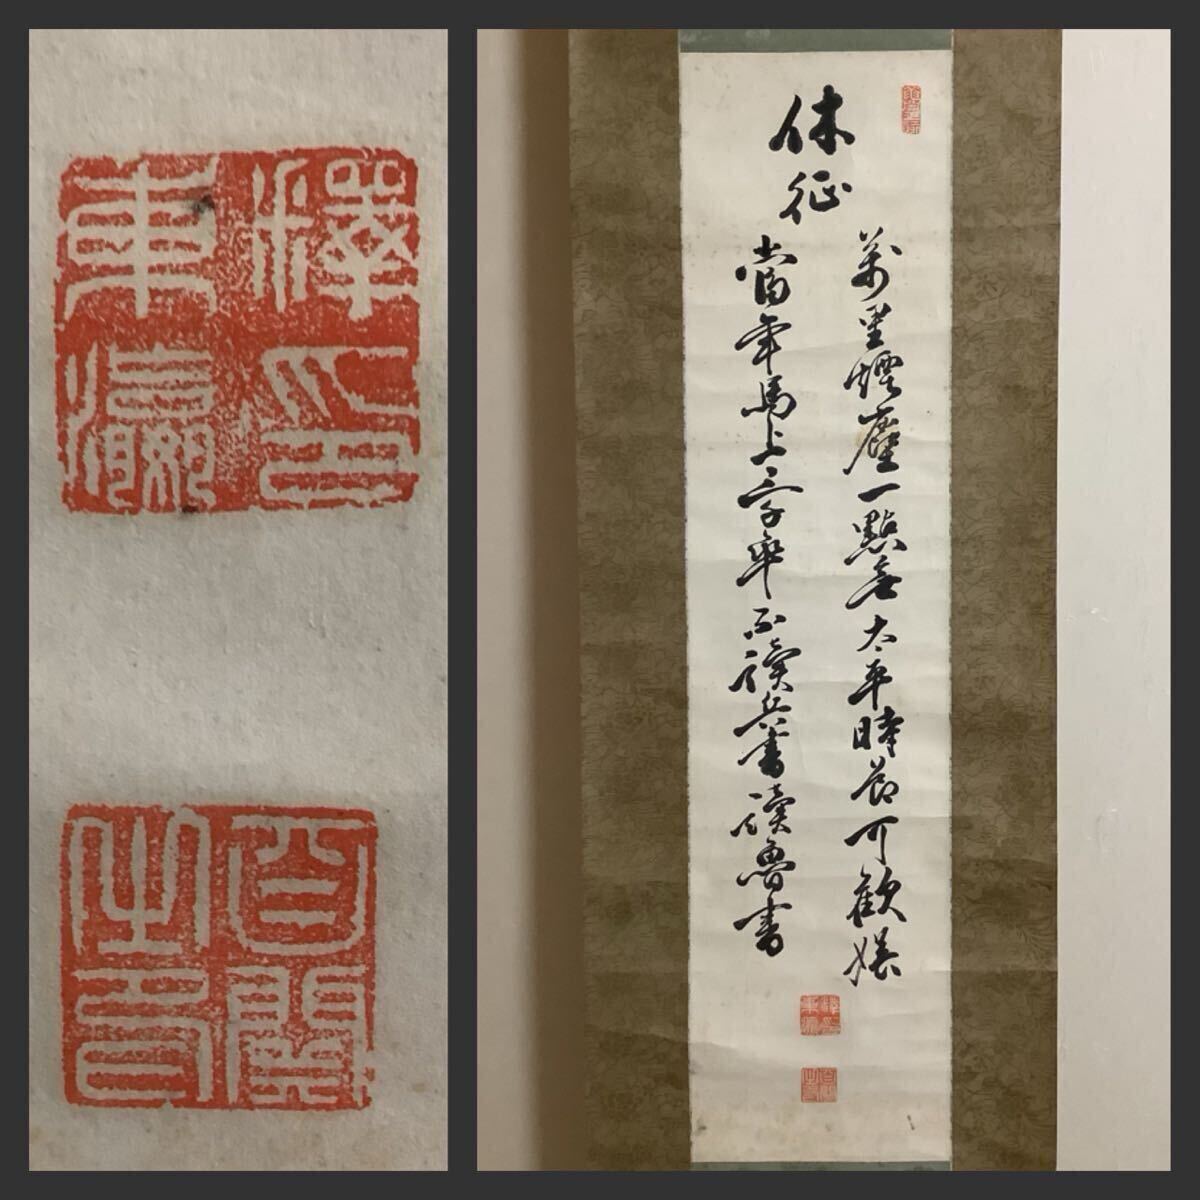 休征
萬里煙塵一點無太平時節可歡娯
當年馬上三千卒不讀兵書讀魯書